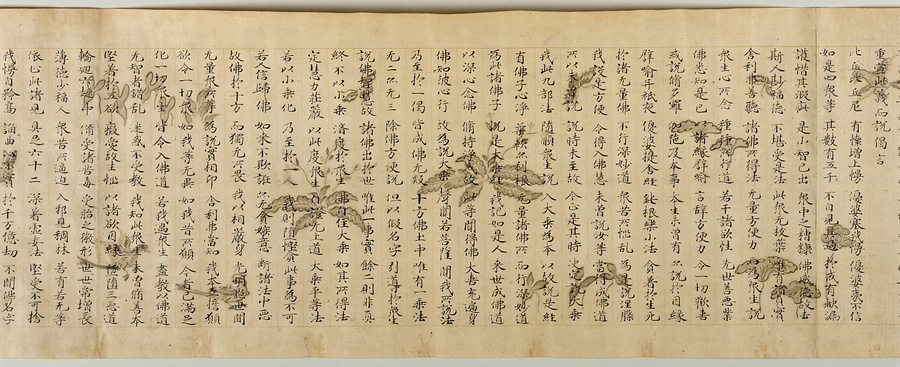 重宣此義而說偈言
比丘比丘尼 有懷增上慢 優婆塞我慢 優婆夷不信
如是四眾等 其數有五千 不自見其過 於戒有缺漏
護惜其瑕疵 是小智已出 眾中之糟糠 佛威德故去
斯人尠福德 不堪受是法 此眾无枝葉 唯有諸貞實
舍利弗善聽 諸佛所得法 无量方便力 而為眾生說
眾生心所念 種種所行道 若干諸欲性 先世善惡業
佛悉知是已 以諸緣譬喻 言辭方便力 令一切歡喜
或說修多羅 伽陀及本事 本生未曾有 亦說於因緣
譬喻并祇夜 優波提舍經 鈍根樂小法 貪著於生死
於諸无量佛 不行深妙道 眾苦所惱亂 為是說涅槃
我設是方便 令得入佛慧 未曾說汝等 當得成佛道
所以未曾說 說時未至故 今正是其時 決定說大乘
我此九部法 隨順眾生說 入大乘為本 以故說是經
有佛子心淨 柔軟亦利根 无量諸佛所 而行深妙道
為此諸佛子 說是大乘經 我記如是人 來世成佛道
以深心念佛 修持淨戒故 此等聞得佛 大喜充遍身
佛知彼心行 故為說大乘 聲聞若菩薩 聞我所說法
乃至於一偈 皆成佛无疑 十方佛土中 唯有一乘法
无二亦无三 除佛方便說 但以假名字 引導於眾生
說佛智慧故 諸佛出於世 唯此一事實 餘二則非真
終不以小乘 濟度於眾生 佛自住大乘 如其所得法
定慧力莊嚴 以此度眾生 自證无上道 大乘平等法
若以小乘化 乃至於一人 我則墮慳貪 此事為不可
若人信歸佛 如來不欺誑 亦无貪嫉意 斷諸法中惡
故佛於十方 而獨无所畏 我以相嚴身 光明照世間
无量眾所尊 為說實相印 舍利弗當知 我本立誓願
欲令一切眾 如我等无異 如我昔所願 今者已滿足
化一切眾生 皆令入佛道 若我遇眾生 盡教以佛道
无智者錯亂 迷惑不受教 我知此眾生 未曾修善本
堅著於五欲 癡愛故生惱 以諸欲因緣 墜墮三惡道
輪迴六趣中 備受諸苦毒 受胎之微形 世世常增長
薄德少福人 眾苦所逼迫 入邪見稠林 若有若无等
依止此諸見 具足六十二 深著虛妄法 堅受不可捨
我慢自矜高 諂曲心不實 於千万億劫 不聞佛名字